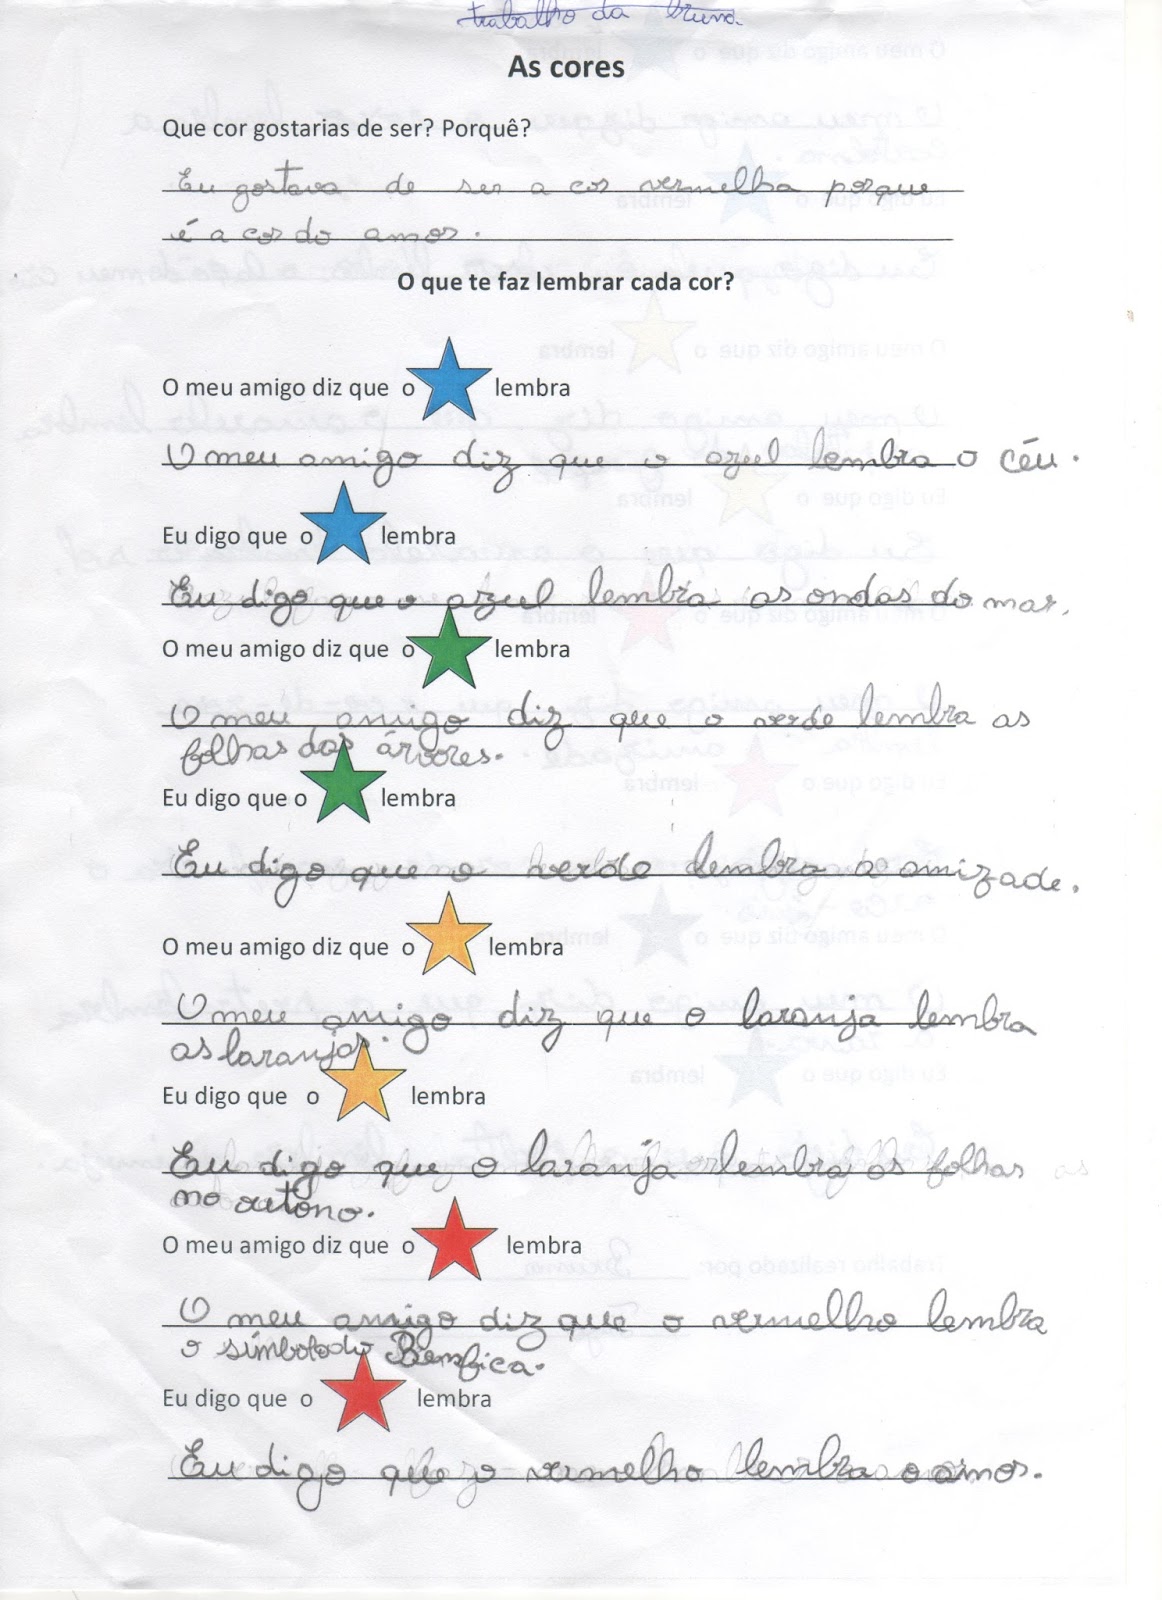 trabalho da Bruna
As cores
Que cor gostarias de ser? Porquê?
Eu gostava de ser a cor vermelha porque
é a cor do amor.
O que te faz lembrar cada cor?
O meu amigo diz que o lembra
O meu amigo diz que o azul lembra o céu.
Eu digo que o lembra
Eu digo que o azul lembra as ondas do mar.
O meu amigo diz que o lembra
O meu amigo diz que o verde lembra as
folhas das árvores.
Eu digo que o lembra
Eu digo que o verde lembra amizade.
O meu amigo diz que o lembra
O meu amigo diz que o laranja lembra
as laranjas.
Eu digo que o lembra
Eu digo que o laranja lembra as folhas
no outono.
O meu amigo diz que o lembra
O meu amigo diz que o vermelho lembra
o símbolo do Benfica.
Eu digo que o lembra
Eu digo que o vermelho lembra o amor.